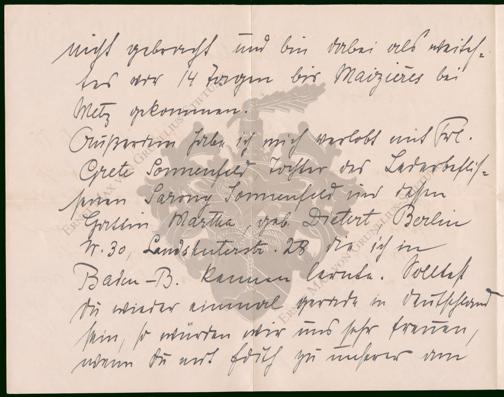 nicht gebracht und bin dabei als weitestes vor 14 Tagen bis Maizières bei
Metz gekommen.
Außerdem habe ich mich verlobt mit Frl.
Grete Sonnenfeld Tochter des
Sonnenfeld und dessen
Gattin Martha, geb. Dietert, Berlin
W. 30, Landshuterstr. 28 die ich in
Baden-B. kennen lernte. Solltest
Du wieder einmal gerade in Deutschland
sein, so würden wir uns sehr freuen,
wenn Du mit Edith zu unserer am